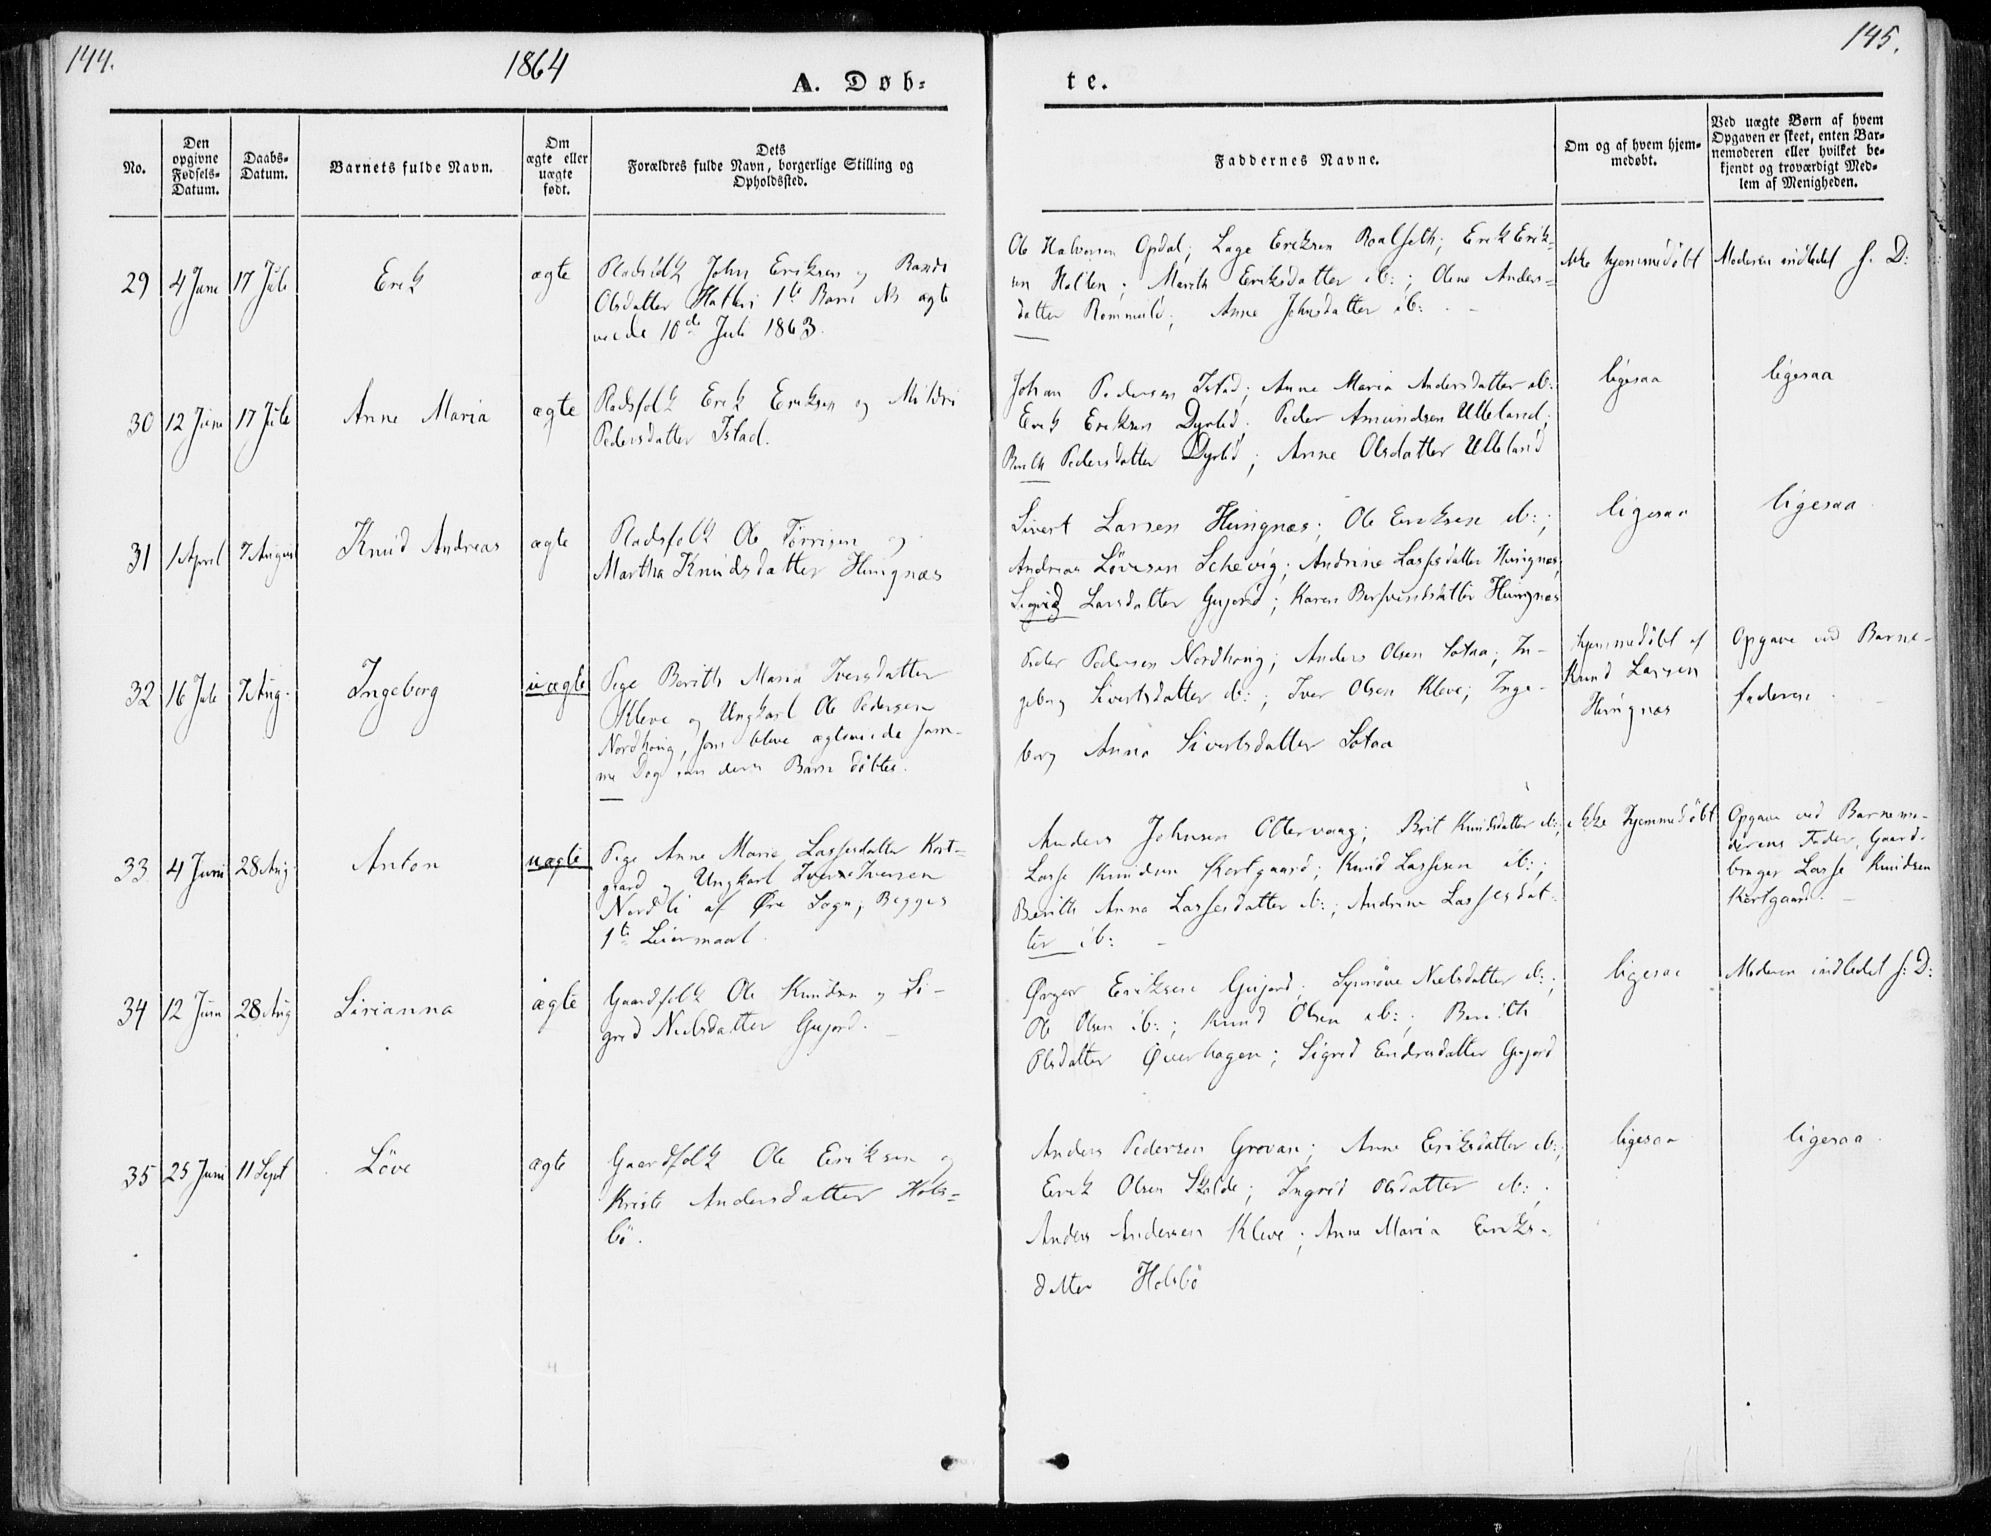 144.
1864
145.
A. Døb-
te.
No.
Den
opgivne
Fødsels-
Datum.
Daabs-
Datum.
Barnets fulde Navn.
Om
ægte eller
uægte
født.
Dets
Forældres fulde Navn, borgerlige Stilling og
Opholdssted.
Faddernes Navne.
Om og af hvem hjem-
medøbt.
Ved uægte Børn af hvem
Opgaven er skeet, enten Bar-
nemoderen eller hvilket be-
kjendt og troværdigt Med-
lem af Menigheden.
29 4 Juni 17 Juli Erik ægte
Pladsfolk John Eriksen og
Olsdatter 1te Barn NB ægte
viede 10de Juli 1863.
Ole Halvorsen Opdal; Lage Eriksen Roalseth; Erik Erik-
sen Holten; Marith Eriksdatter ib:; Olene Anders-
datter; Anne Johnsdatter ib:
ikke hjemmedöbt
Moderen indledet s. D:
30 12 Juni 17 Juli Anne Maria ægte
Pladsfolk Erik Eriksen og Mildri
Pedersdatter Istad.
Johan Pedersen Istad; Anne Maria Andersdatter ib:
Erik Eriksen Dyrlid; Peder Amundsen Ulleland;
Pedersdatter Dyrlid; Anne Olsdatter Ulleland
ligesaa
ligesaa
31 1 April 7 August Knud Andreas ægte
Pladsfolk Ole Torrisen og
Martha Knudsdatter Hungnæs
Sivert Larsen Hungnæs; Ole Eriksen ib:;
Andreas Lövesen Schevig; Andrine Lassesdatter Hungnæs;
Sigrid Larsdatter Gujord; Karen Hungnæs
ligesaa
ligesaa
32 16 Juli 7 Aug. Ingeborg uægte
Pige Berith Maria Iversdatter
Kleve og Ungkarl Ole Pedersen
Nordhoug, som bleve ægteviede sam-
me Dag som deres Barn döbtes.
Peder Pedersen Nordhoug; Anders Olsen Sotaa; In-
geborg Sivertsdatter ib:; Iver Olsen Kleve; Inge-
borg Anna Sivertsdatter Sotaa
hjemmedöbt af
Knud Larsen
Hungnæs
Opgave ved Barne-
faderen
33 4 Juni 28 Aug. Anton uægte
Pige Anne Marie Lassesdatter Kort-
gaard og Ungkarl Iver Iversen
Nordli af Øre Sogn; Begges
1te Leiermaal.
Anders Johnsen Ottervaag; Brit Knudsdatter ib:;
Lasse Knudsen Kortgaard; Knud Lassesen ib:;
Berith Anna Lassesdatter ib:; Andrine Lassesdat-
ter ib:
ikke hjemmedöbt
Opgave ved Barnemo-
derens Fader, Gaard-
bruger Lasse Knudsen
Kortgaard.
34 12 Juni 28 Aug Sirianna ægte
Gaardfolk Ole Knudsen og Si-
grid Nielsdatter Gujord.
Ørger Eriksen Gujord; Synnöve Nielsdatter ib:;
Ole Olsen ib:; Knud Olsen ib:; Berith
Olsdatter Øverhagen; Sigrid Endresdatter Gujord
ligesaa
Moderen indledet s: D:
35 25 Juni 11 Sept Löve ægte
Gaardfolk Ole Eriksen og
Kristi Andersdatter Hols-
bö.
Anders Pedersen Grovan; Anne Eriksdatter ib:;
Erik Olsen Skalde; Ingrid Olsdatter ib:;
Anders Andersen Kleve; Anne Maria Eriks-
datter Holsbö
ligesaa
ligesaa